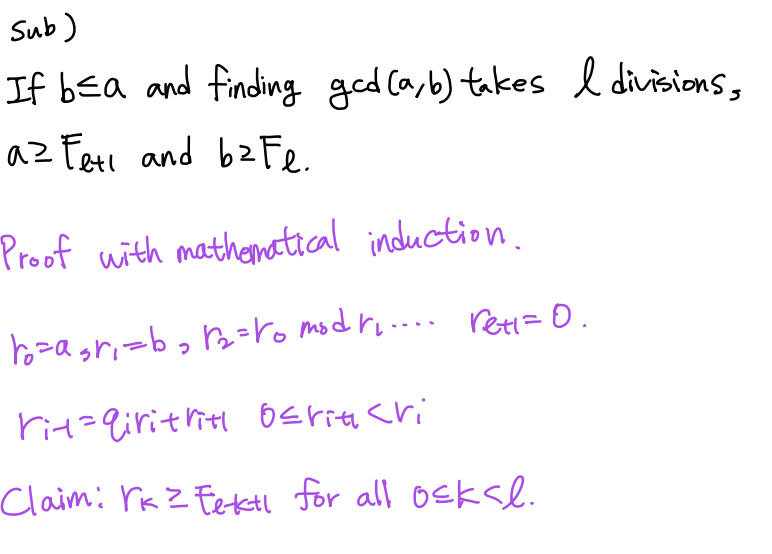 Sub)
If b≤a and finding gcd(a,b) takes l divisions,
a≥F_{l+1} and b≥F_l.
Proof with mathematical induction.
r_0=a, r_1=b, r_2=r_0 mod r_1.... r_{l+1}=0.
r_{i-1}=q_i r_i+r_{i+1} 0≤r_{i+1}<r_i
Claim: r_k≥F_{l-k+1} for all 0≤k<l.